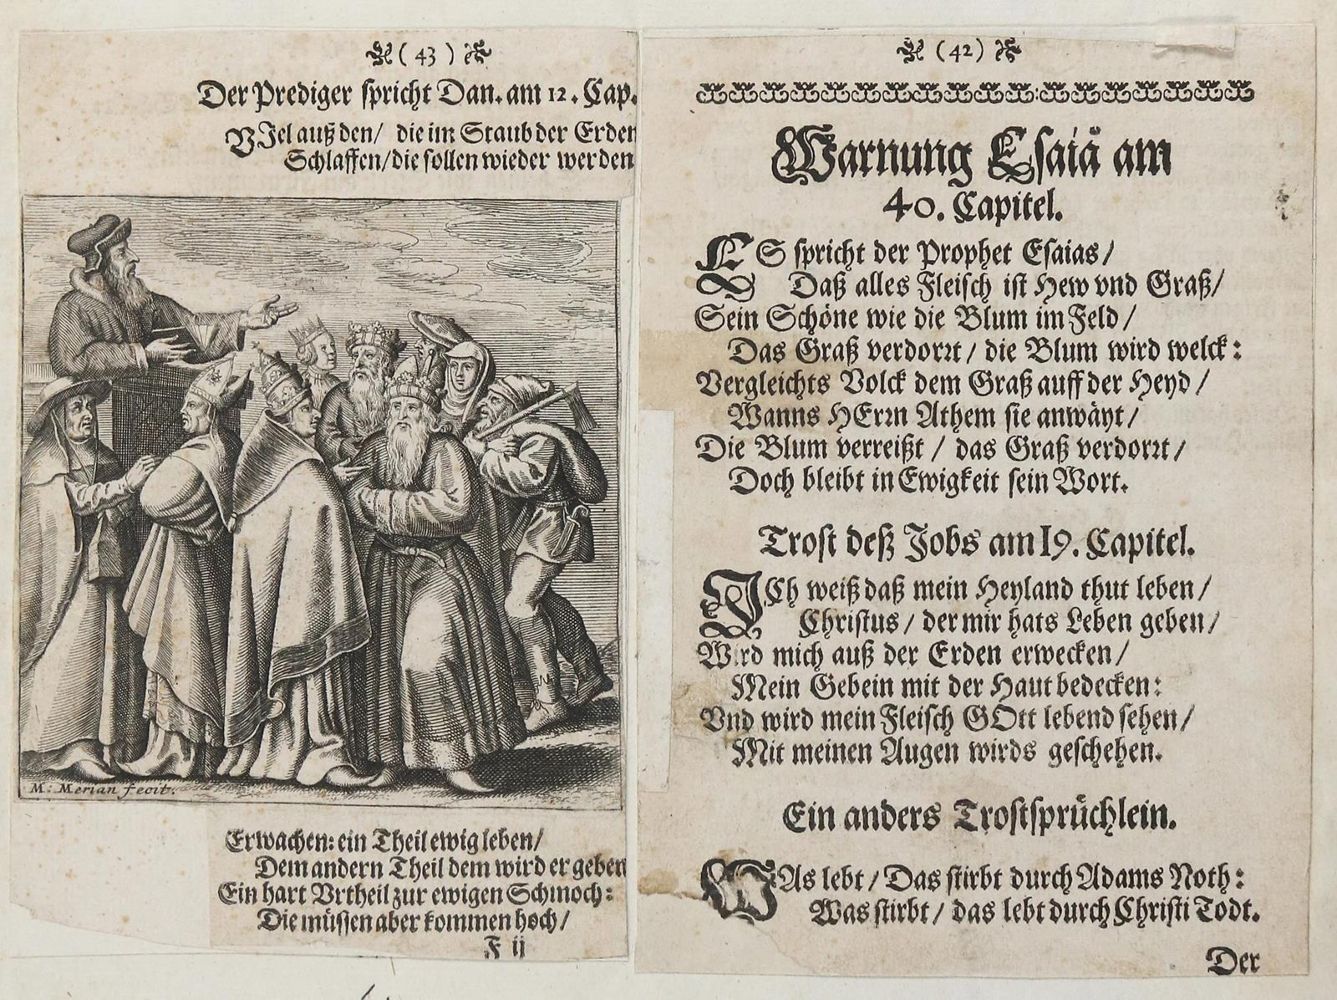 ( 43 )
Der Prediger spricht Dan. am 12. Cap.
VJel auß den / die im Staub der Erden
Schlaffen / die sollen wieder werden
M: Merian fecit.
Erwachen: ein Theil ewig leben /
Dem andern Theil dem wird er geben
Ein hart Vrtheil zur ewigen Schmoch:
Die müssen aber kommen hoch /
F ij
( 42 )
Warnung Esaiä am
40. Capitel.
ES spricht der Prophet Esaias /
Daß alles Fleisch ist Hew vnd Graß /
Sein Schöne wie die Blum im Feld /
Das Graß verdorrt / die Blum wird welck:
Vergleichts Volck dem Graß auff der Heyd /
Wanns HErrn Athem sie anwäyt /
Die Blum verreißt / das Graß verdorrt /
Doch bleibt in Ewigkeit sein Wort.
Trost deß Jobs am 19. Capitel.
JCh weiß daß mein Heyland thut leben /
Christus / der mir hats Leben geben /
Wird mich auß der Erden erwecken /
Mein Gebein mit der Haut bedecken:
Vnd wird mein Fleisch GOtt lebend sehen /
Mit meinen Augen wirds geschehen.
Ein anders Trostsprüchlein.
WAs lebt / Das stirbt durch Adams Noth:
Was stirbt / das lebt durch Christi Todt.
Der